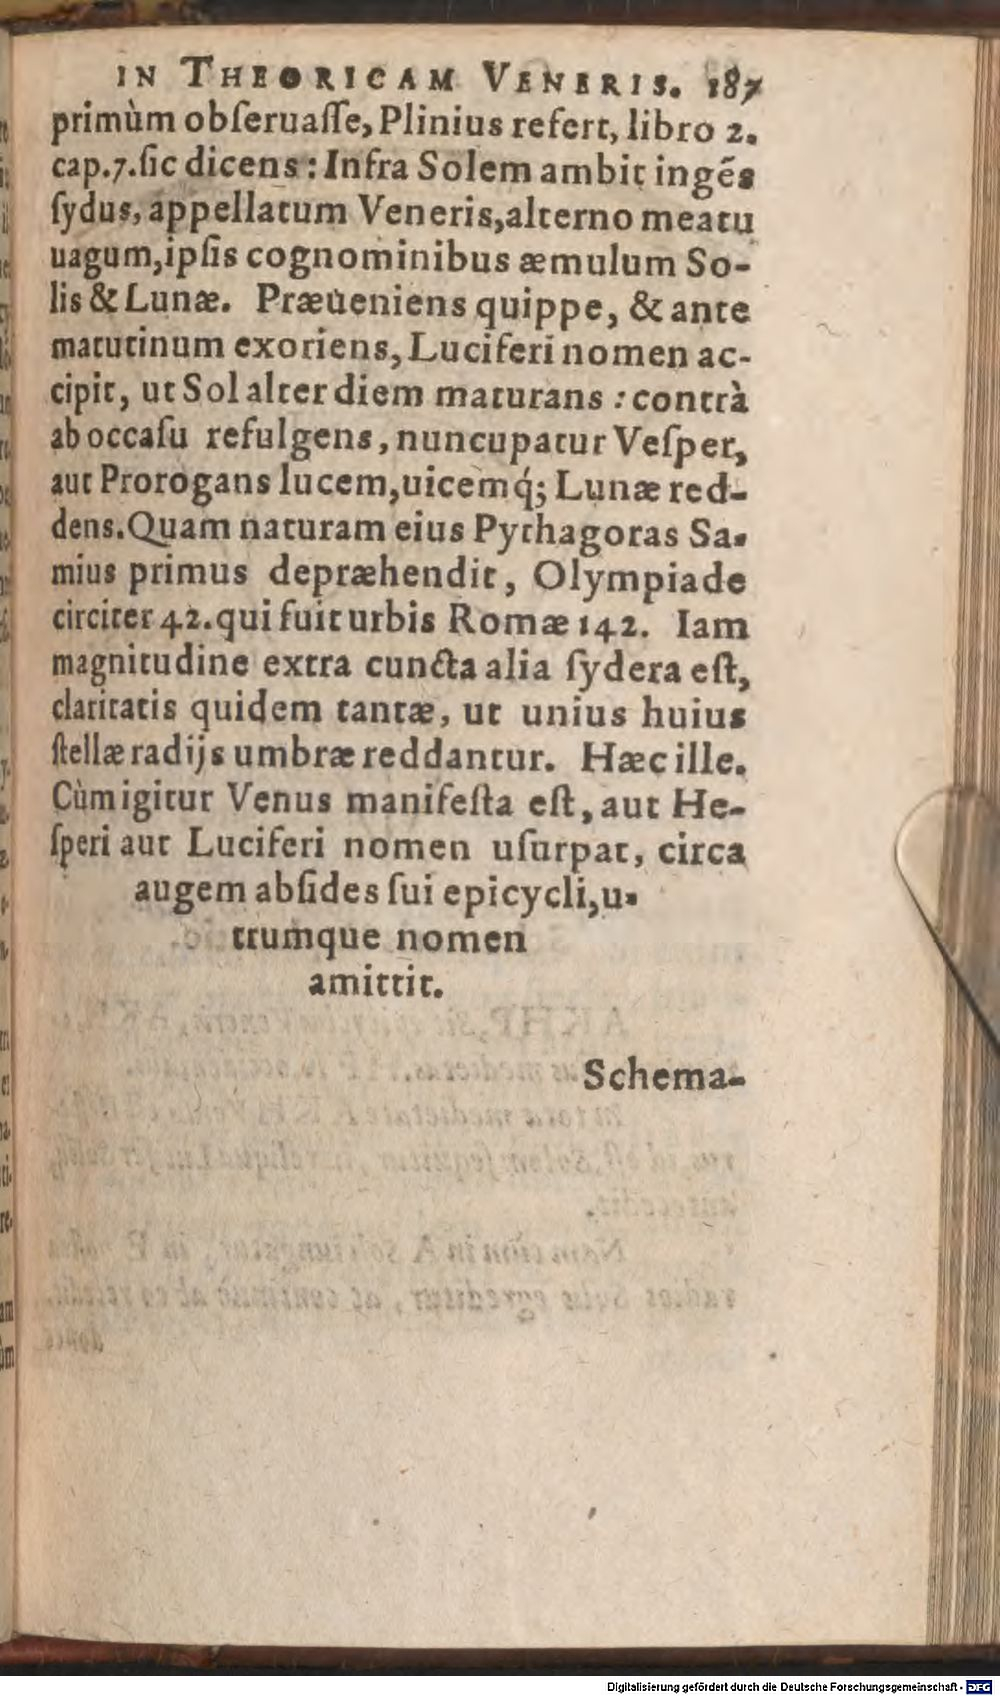 IN THEORICAM VENERIS. 187
primùm obſeruaſſe, Plinius refert, libro 2.
cap.7.ſic dicens: Infra Solem ambit ingẽs
ſydus, appellatum Veneris, alterno meatu
uagum, ipſis cognominibus æmulum So-
lis & Lunæ. Præueniens quippe, & ante
matutinum exoriens, Luciferi nomen ac-
cipit, ut Sol alter diem maturans : contrà
ab occaſu refulgens, nuncupatur Veſper,
aut Prorogans lucem, uicemq́; Lunæ red-
dens. Quam naturam eius Pythagoras Sa-
mius primus depræhendit, Olympiade
circiter 42. qui fuit urbis Romæ 142. Iam
magnitudine extra cuncta alia ſydera eſt,
claritatis quidem tantæ, ut unius huius
ſtellæ radijs umbræ reddantur. Hæc ille.
Cùm igitur Venus manifeſta eſt, aut He-
ſperi aut Luciferi nomen uſurpat, circa
augem abſides ſui epicycli, u-
trumque nomen
amittit.
Schema-
Digitalisierung gefördert durch die Deutsche Forschungsgemeinschaft - DFG